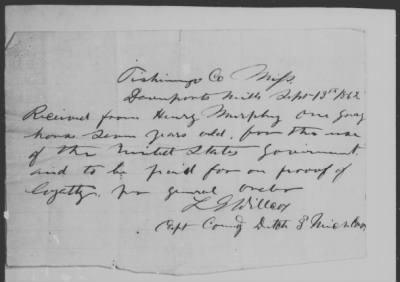 Tishimngo Co Miss
Davenports Mills Sept 13th 1862
Received from Henry Murphy one gray
horse seven years old, for the use
of the United States Goverment
and to be paid for on proof of
loyalty. per general order
L G Willcox
Capt Comdg Detch 3d Mich Cav